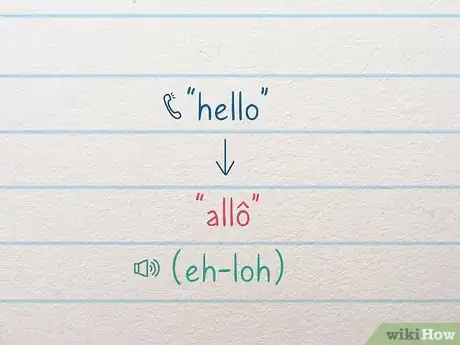 "hello"
"allô"
(eh-loh)
wikiHow